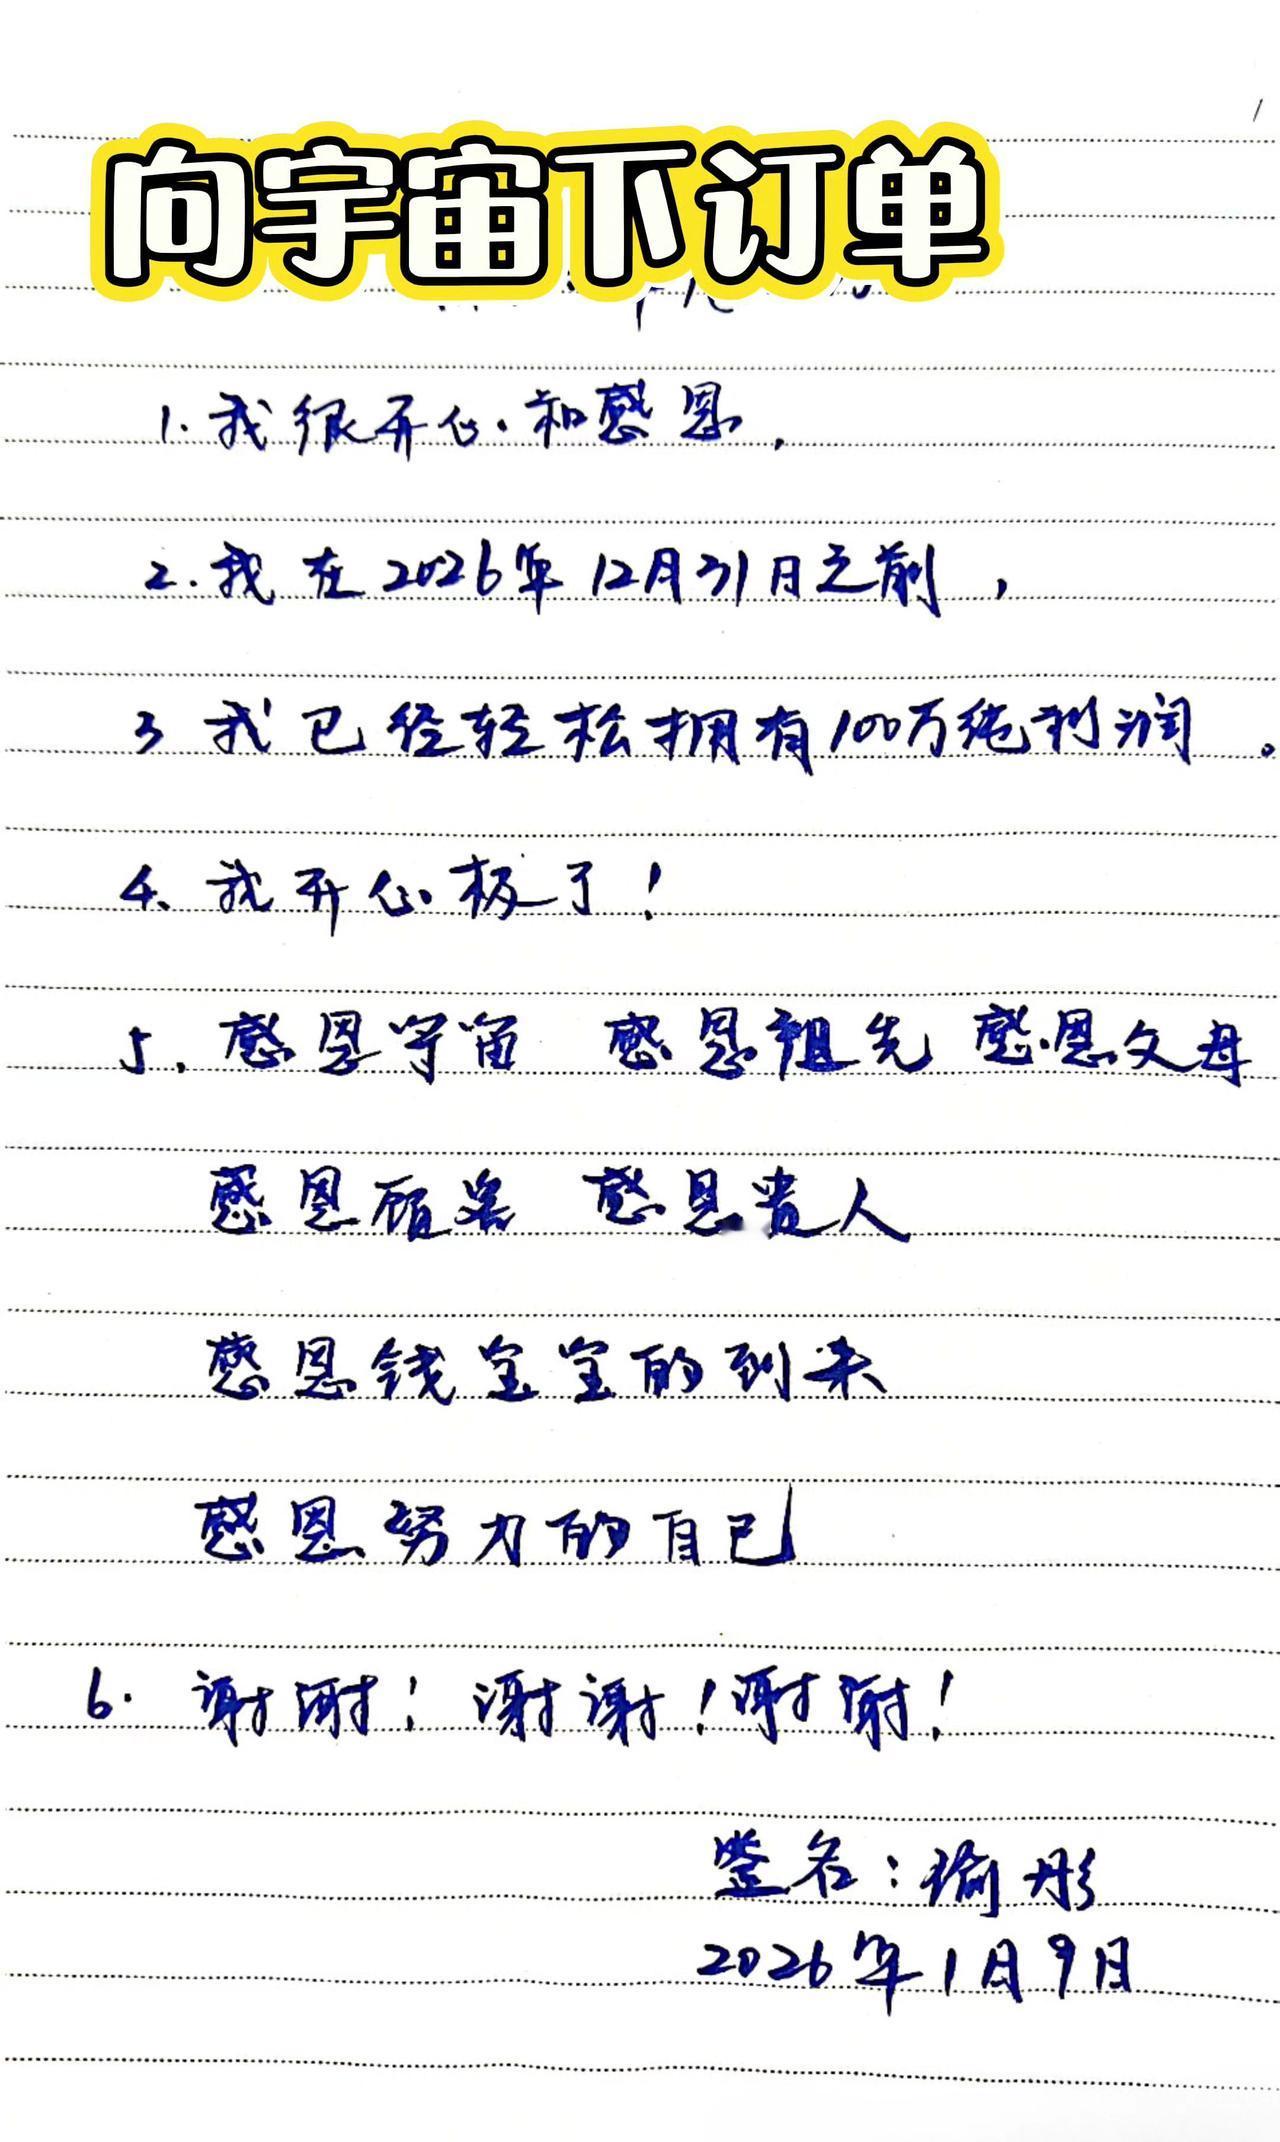 向宇宙下订单
1.我很开心和感恩,
2.我在2026年12月31日之前,
3 我已经轻松拥有100万纯利润。
4、我开心极了!
5.感恩宇宙 感恩祖先 感恩父母
感恩顾客 感恩贵人
感恩钱宝宝的到来
感恩努力的自己
6.谢谢!谢谢!谢谢!
签名:瑜彤
2026年1月9日